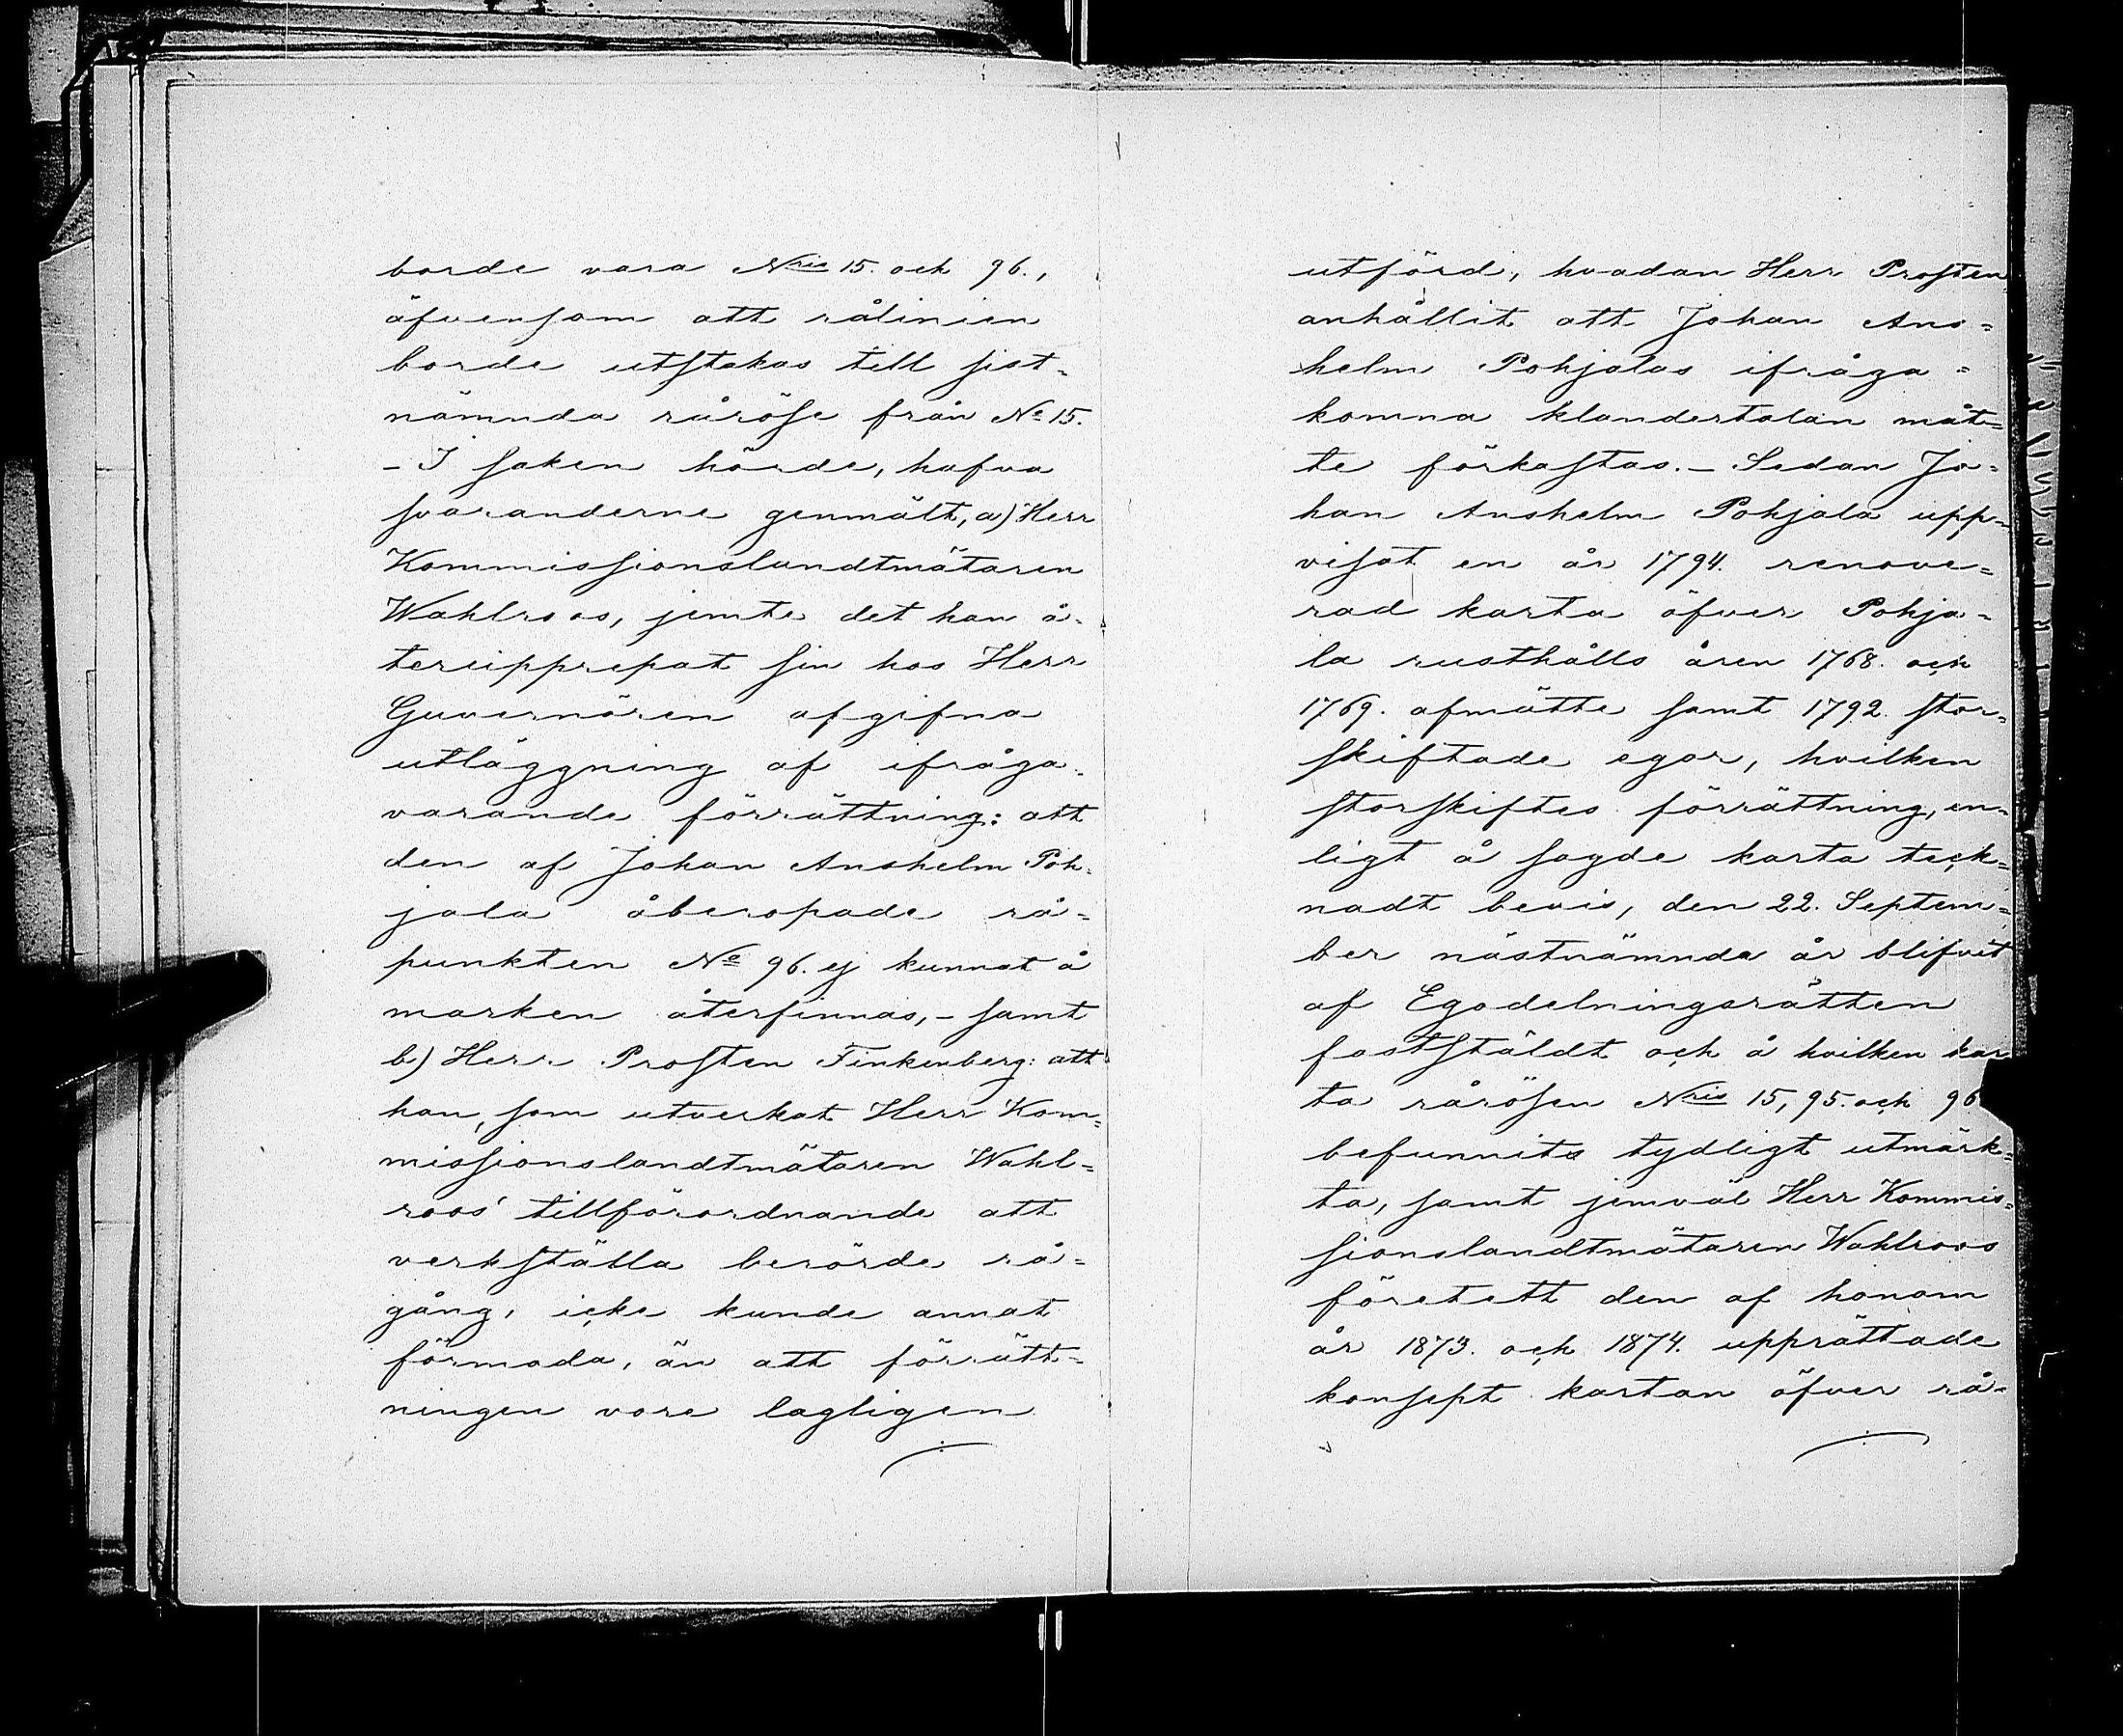 borde vara N<sup>ris</sup> 15. och 96.,
äfvensom att rålinien
borde utstakas till sist-
nämnda råröse från N<sup>o</sup> 15.
– I saken hörde, hafva
svaranderne genmält, a) Herr
Kommissionslandtmätaren
Wahlroos, jemte det han å-
terupprepat sin hos Herr
Guvernören afgifna
utläggning af ifråga-
varande förrättning: att
den af Johan Anshelm Poh-
jala åberopade rå-
punkten N<sup>o</sup> 96. ej kunnat å
marken återfinnas, – samt
b) Herr Prosten Finkenberg: att
han, som utverkat Herr Kom-
missionslandtmätaren Wahl-
roos' tillförordnande att
verkställa berörde rå-
gång, icke kunde annat
förmoda, än att förrätt-
ningen vore lagligen
utförd, hvadan Herr Prosten
anhållit att Johan Ans-
helm Pohjalas ifråga-
komna klandertalan måt-
te förkastas. – Sedan Jo-
han Anshelm Pohjala upp-
visat en år 1794. renove-
rad karta öfver Pohja-
la rusthålls åren 1768. och
1769. afmätte samt 1792. stor-
skiftade egor, hvilken
storskiftes förrättning, en-
ligt å sagde karta teck-
nadt bevis, den 22. Septem-
ber nästnämnda år blifvit
af Egodelningsrätten
fastställdt och å hvilken kar
ta rårösen N<sup>ris</sup> 15, 95. och 96
befunnits tydligt utmärk-
ta, samt jemväl Herr Kommis-
sionslandtmätaren Wahlroos
företett den af honom
år 1873. och 1874. upprättade
konsept kartan öfver rå-